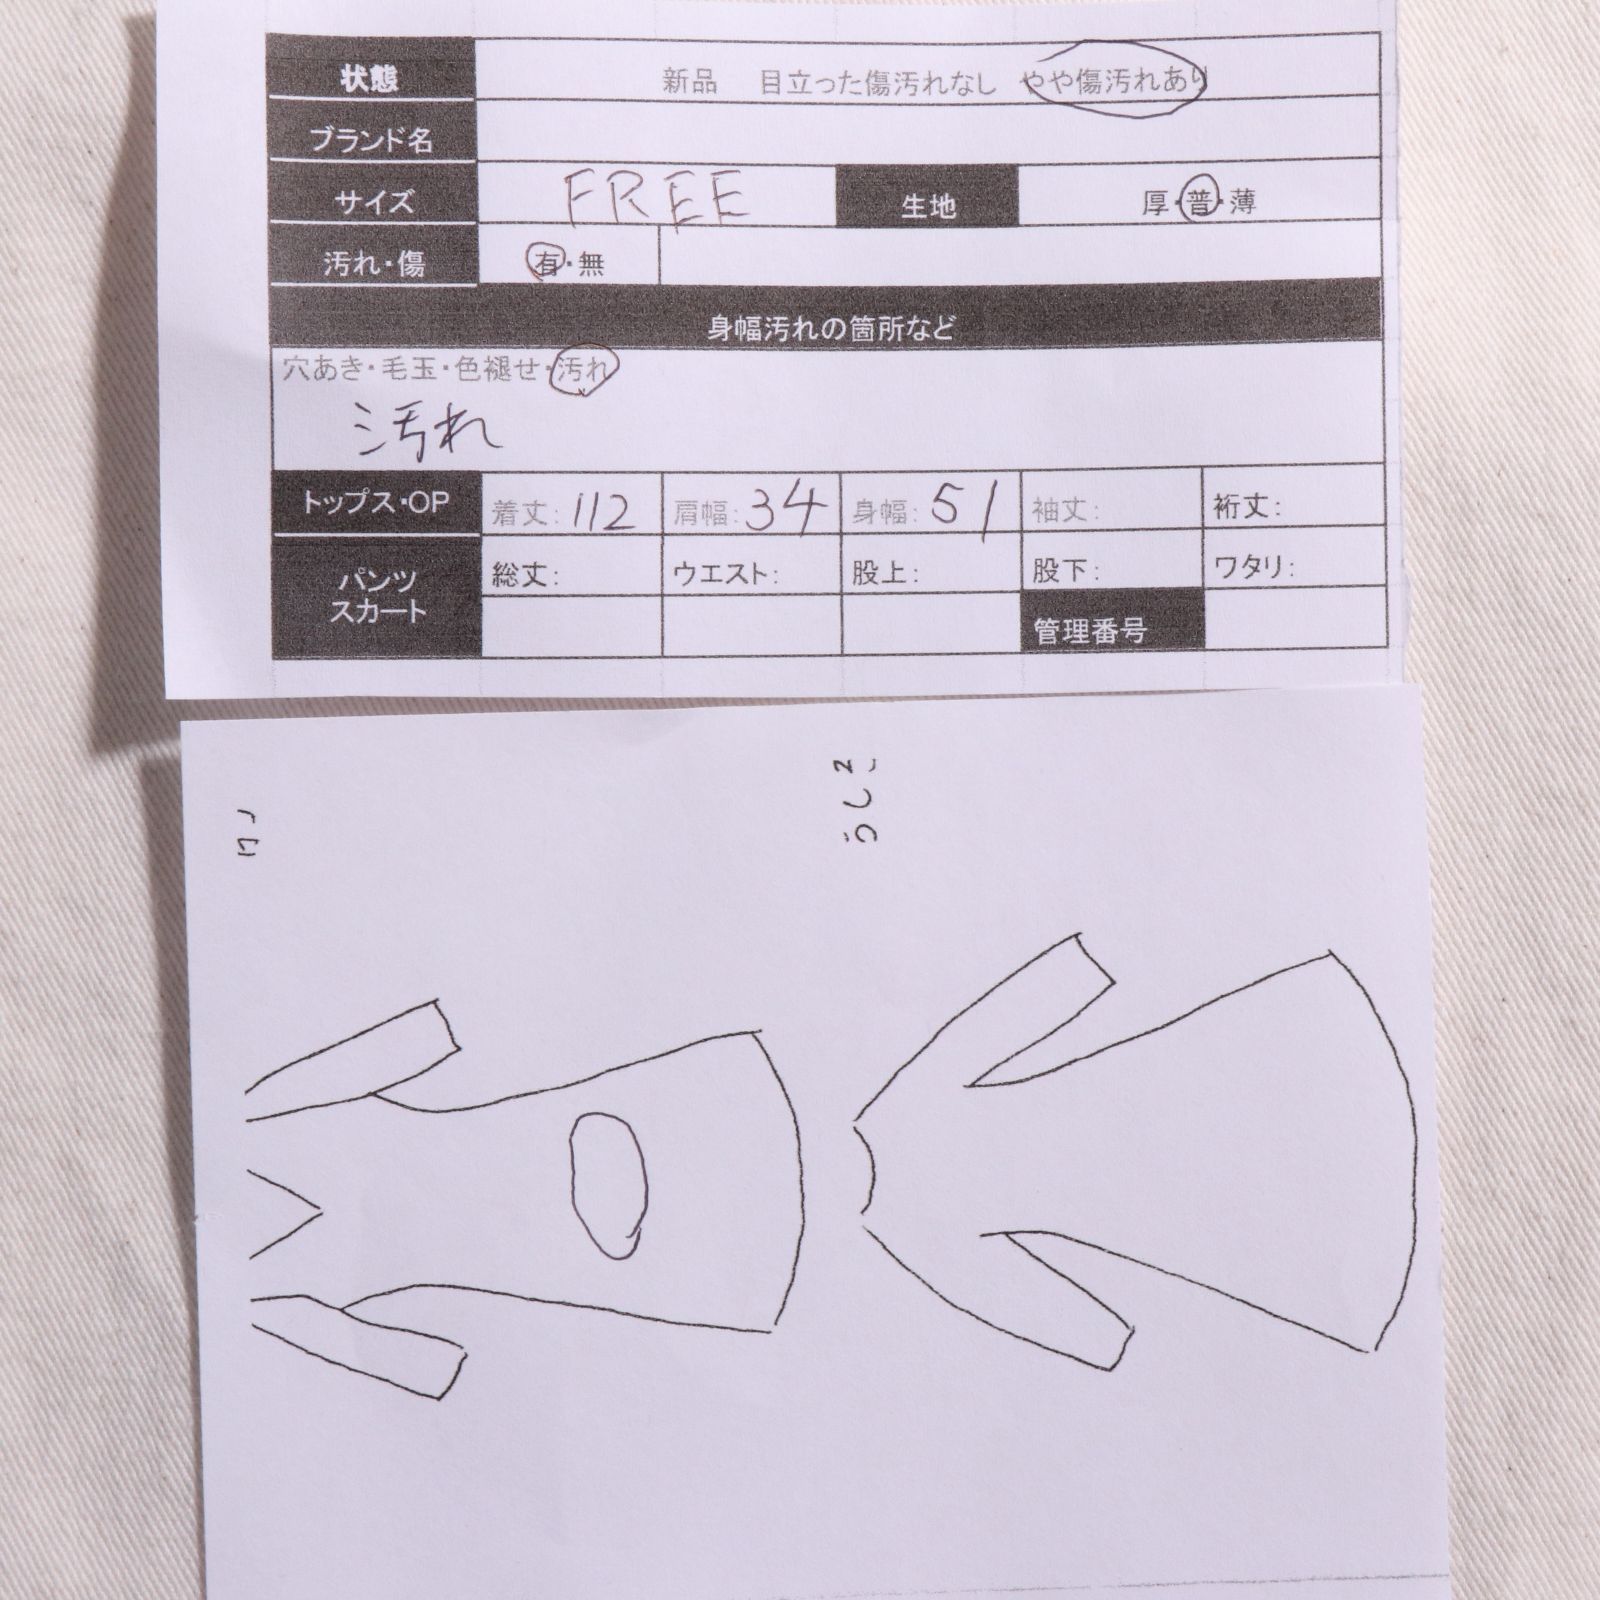 状態 新品 目立った傷汚れなし やや傷汚れあり
ブランド名
サイズ FREE 生地 厚・普・薄
汚れ・傷 有・無
身幅汚れの箇所など
穴あき・毛玉・色褪せ・汚れ
汚れ
トップス・OP 着丈: 112 肩幅: 34 身幅: 51 袖丈: 裄丈:
パンツ スカート 総丈: ウエスト: 股上: 股下: ワタリ:
管理番号
うしろ